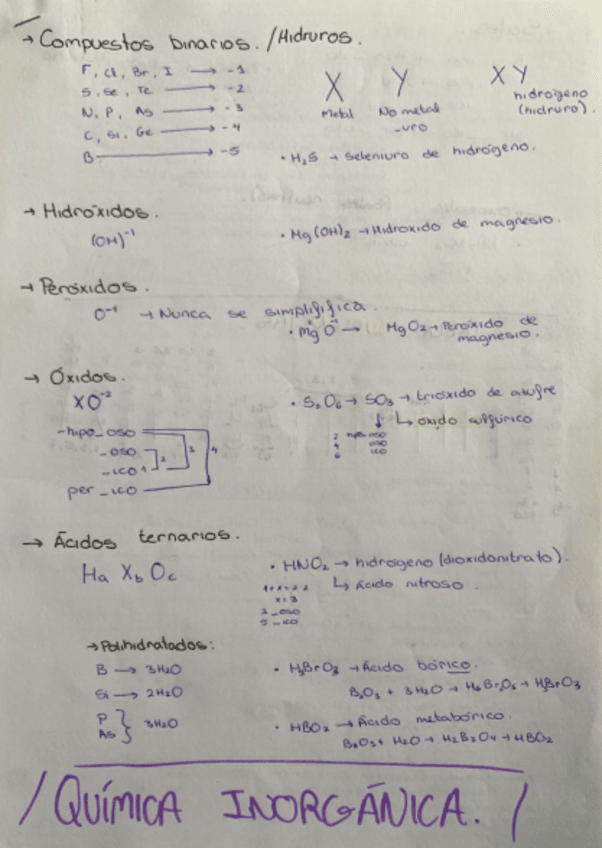 → Compuestos binarios. / Hidruros.
F, Cl, Br, I → -1
S, Se, Te → -2
N, P, As → -3
C, Si, Ge → -4
B → -5
X Y XY
Metal No metal hidrógeno
-uro (hidruro).
• H₂S → Seleniuro de hidrógeno.
→ Hidróxidos.
(OH)⁻¹
• Mg(OH)₂ → Hidróxido de magnesio.
→ Peróxidos.
O⁻¹ → Nunca se simplififica.
• Mg O → MgO₂ → Peróxido de
magnesio.
→ Óxidos.
XO⁻²
• S₂O₆ → SO₃ → trióxido de azufre
↓ ↳ óxido sulfúrico
2 hipo-oso
4 oso
6 ico
-hipo_oso
_oso
_ico
per_ico
1 2 3 4
→ Ácidos ternarios.
Ha Xb Oc
• HNO₂ → hidrogeno (dioxidonitrato).
↳ Ácido nitroso.
x = 3
3 _oso
5 _ico
→ Polihidratados:
B → 3H₂O
Si → 2H₂O
P
As } 3H₂O
• H₃BrO₃ → Ácido bórico.
B₂O₃ + 3H₂O → H₆Br₂O₆ → H₃BrO₃
• HBO₂ → Ácido metabórico.
B₂O₃ + H₂O → H₂B₂O₄ → HBO₂
/ QUÍMICA INORGÁNICA. /